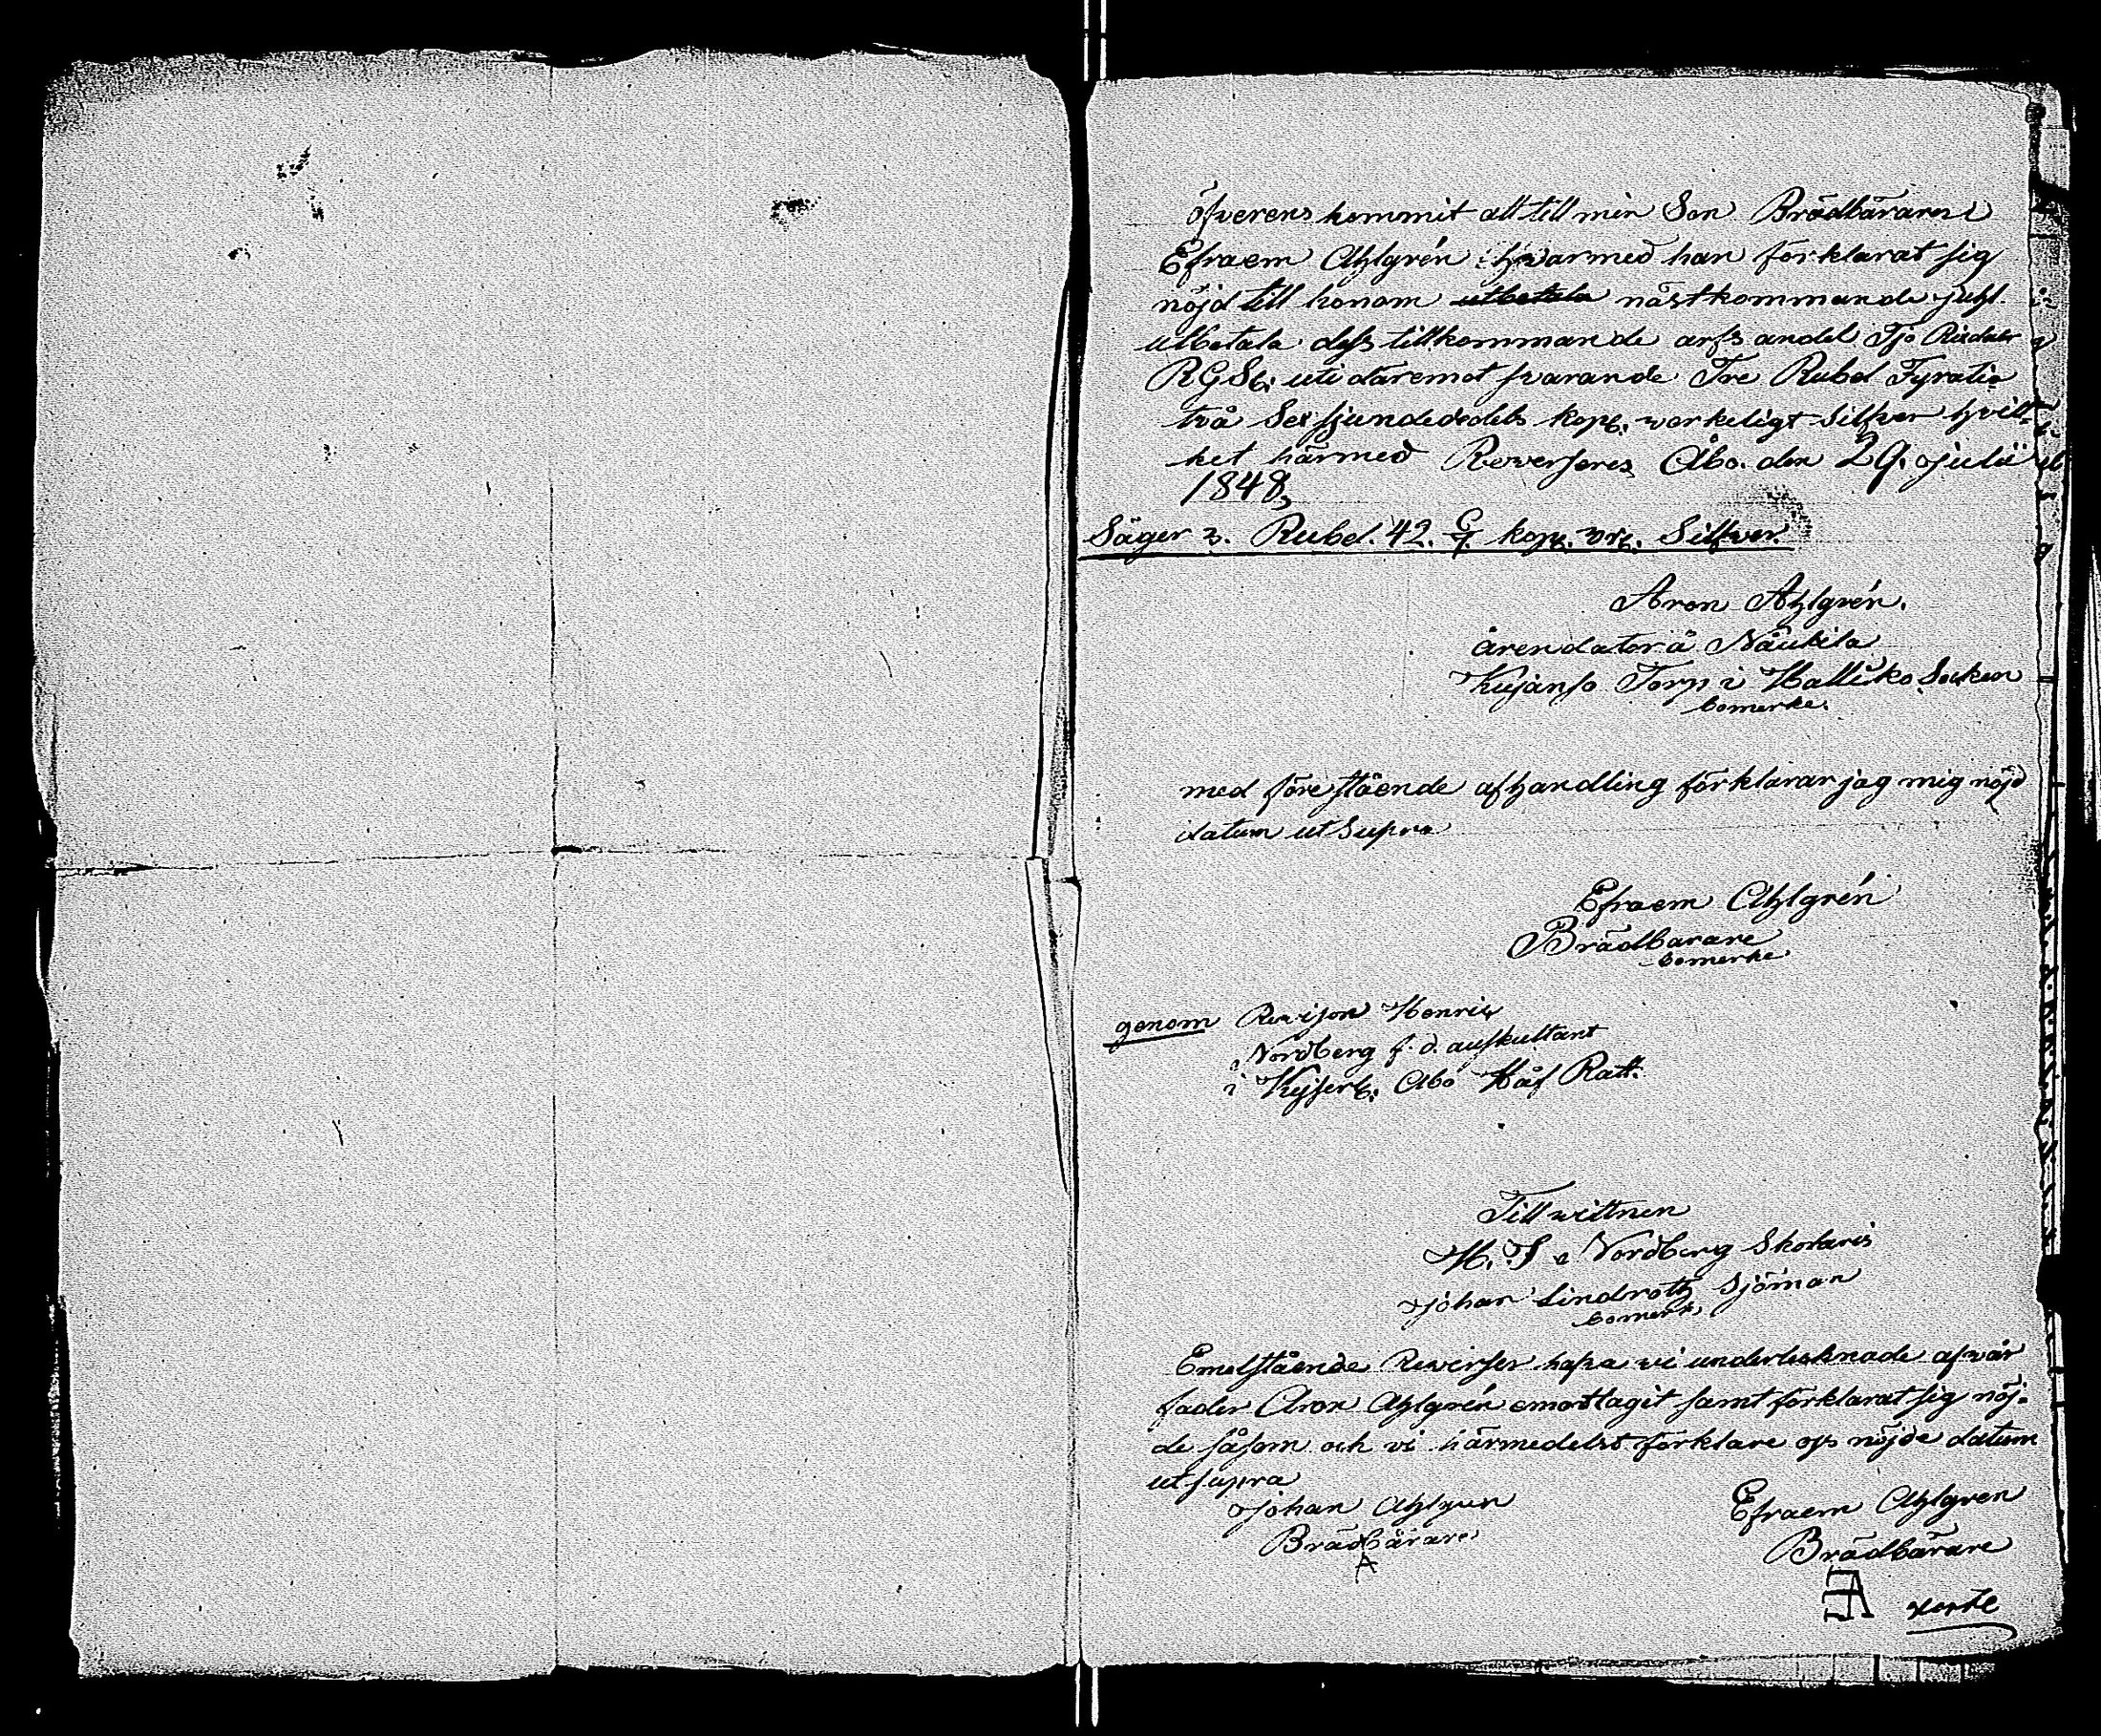 öfverens kommit att till min Son Brädbäraren
Efraem Ahlgrén hvarmed han förklarat sig
nöjd till honom utbetala nästkommande juhl
utbetala dess tillkommande arfs andel Tjo Rixdaler
RGSl. uti däremot svarande Tre Rubel Fyratio
två Sex sjundedels kop. verkeligt Silfver hvill-
ket härmed Reverseres Åbo. den 29. julii
1848,
Säger 3. Rubel. 42. 6/7. kop. vrk. Silfver
Aron Ahlgrén.
årendator å Naukila
Kujanso Torp i Halliko Socken
bomerke.
med förestående afhandling förklarar jag mig nöjd
datum ut Supra
Efraem Ahlgrén
Brädbarare
bomerke
genom Revison Henrik
Nordberg f. d. auskultant
i Kejserl. Åbo Håf Rätt.
Till vittnen
H. J Nordberg
Johan Lindroth Sjöman
bomerk
Emelstående Reverser hafva vi undertecknade af vår
fader Aron Ahlgrén emottagit samt förklarat sig nöj-
de såsom och vi härmedelst förklare oss nöjde datum
ut supra
Johan Ahlgren
Brädbärare
Efraem Ahlgren
Brädbärare
EA